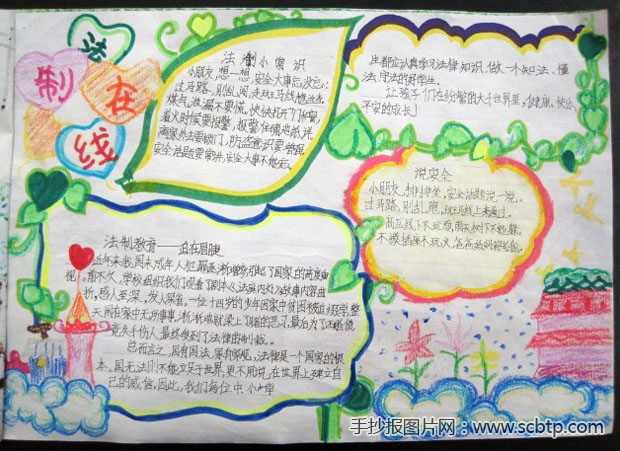 法
制
在
线
法制小常识
小朋友想一想,安全大事忘没忘:
过马路,别乱闯,走斑马线
煤气泄漏不要慌,快快打开门和窗,
着火时候要报警,报警住
离家外出要锁门,防盗意识要增强
安全话题要常讲,安全大事不能忘。
生都应认真学习法律知识,做一个知法、懂
法、守法的好学生。
让孩子们在纷繁的大千世界里,健康、快乐、
平安的成长!
说安全
小朋友,排排坐,安全话题说一说,
过马路,别乱跑,斑马线上来通过。
高压线下不玩耍,雨天树下不能躲。
不摸插座不玩火,
法制教育——迫在眉睫
近年来,我国未成年人犯罪逐渐增多,引起了国家的高度重
视,前不久,学校组织我们观看了
折,感人至深,发人深省。一位十四岁的少年因家中贫困被迫
天闲在家中无所事事,渐渐地就染上了
竟失手伤人,最终受到了法律的制裁。
总而言之,国有国法,家有家规,法律是一个国家的根
本,国无法则不能立足于世界,更不用说,在世界上建立自
己的威信,因此,我们每位中、小学
手抄报图片网:www.scbtp.com